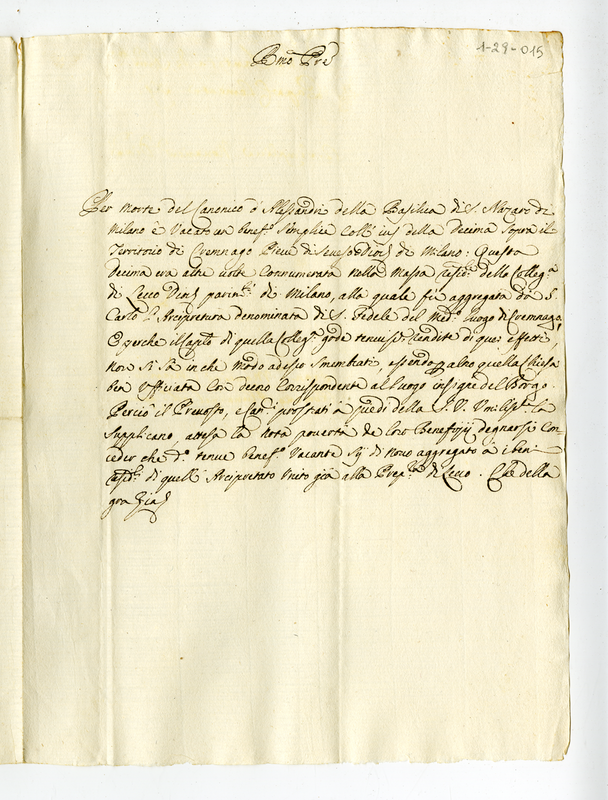 1-29-015
Bmo Pre
Per morte del Canonico d'Alessandri della Basilica di S. Nazaro di
Milano è Vacato un Benef.o Simplice coll' ius della decima sopra il
Territorio di Cremnago Pieve di Seveso Dioc. di Milano: Questa
decima era altre volte connumerata nella Massa della Colleg.a
di Lecco parim.te di Milano, alla quale fù aggregata da S.
Carlo l'Arcipretura denominata di S. Fedele del Med.o luogo di Cremnago,
E perche il Capit.o di quella Colleg.a gode tenuiss.e Rendite di quei effetti
non si sà in che modo adesso smembrati, essendo p altro quella Chiesa
ben Ufficiata con decoro Corrispondente al luogo insigne del Borgo
Perciò il Prevosto, e Can.ci prostrati à piedi della S. V. Umiliss.te la
Supplicano, attesa la nota povertà de loro Beneficij degnarsi Con
ceder che d.o tenue Benef.o Vacante sij di novo aggregato à i beni
di quell' Arcipretato Unito già alla Prep.ra di Lecco. Che della
grazia